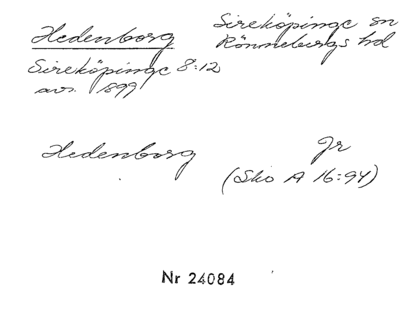 Hedenborg
Sireköpinge sn
Rönnebergs hd
Sireköpinge 8:12
avs. 1899
Hedenborg
Jr
(Sko A 16:94)
Nr 24084